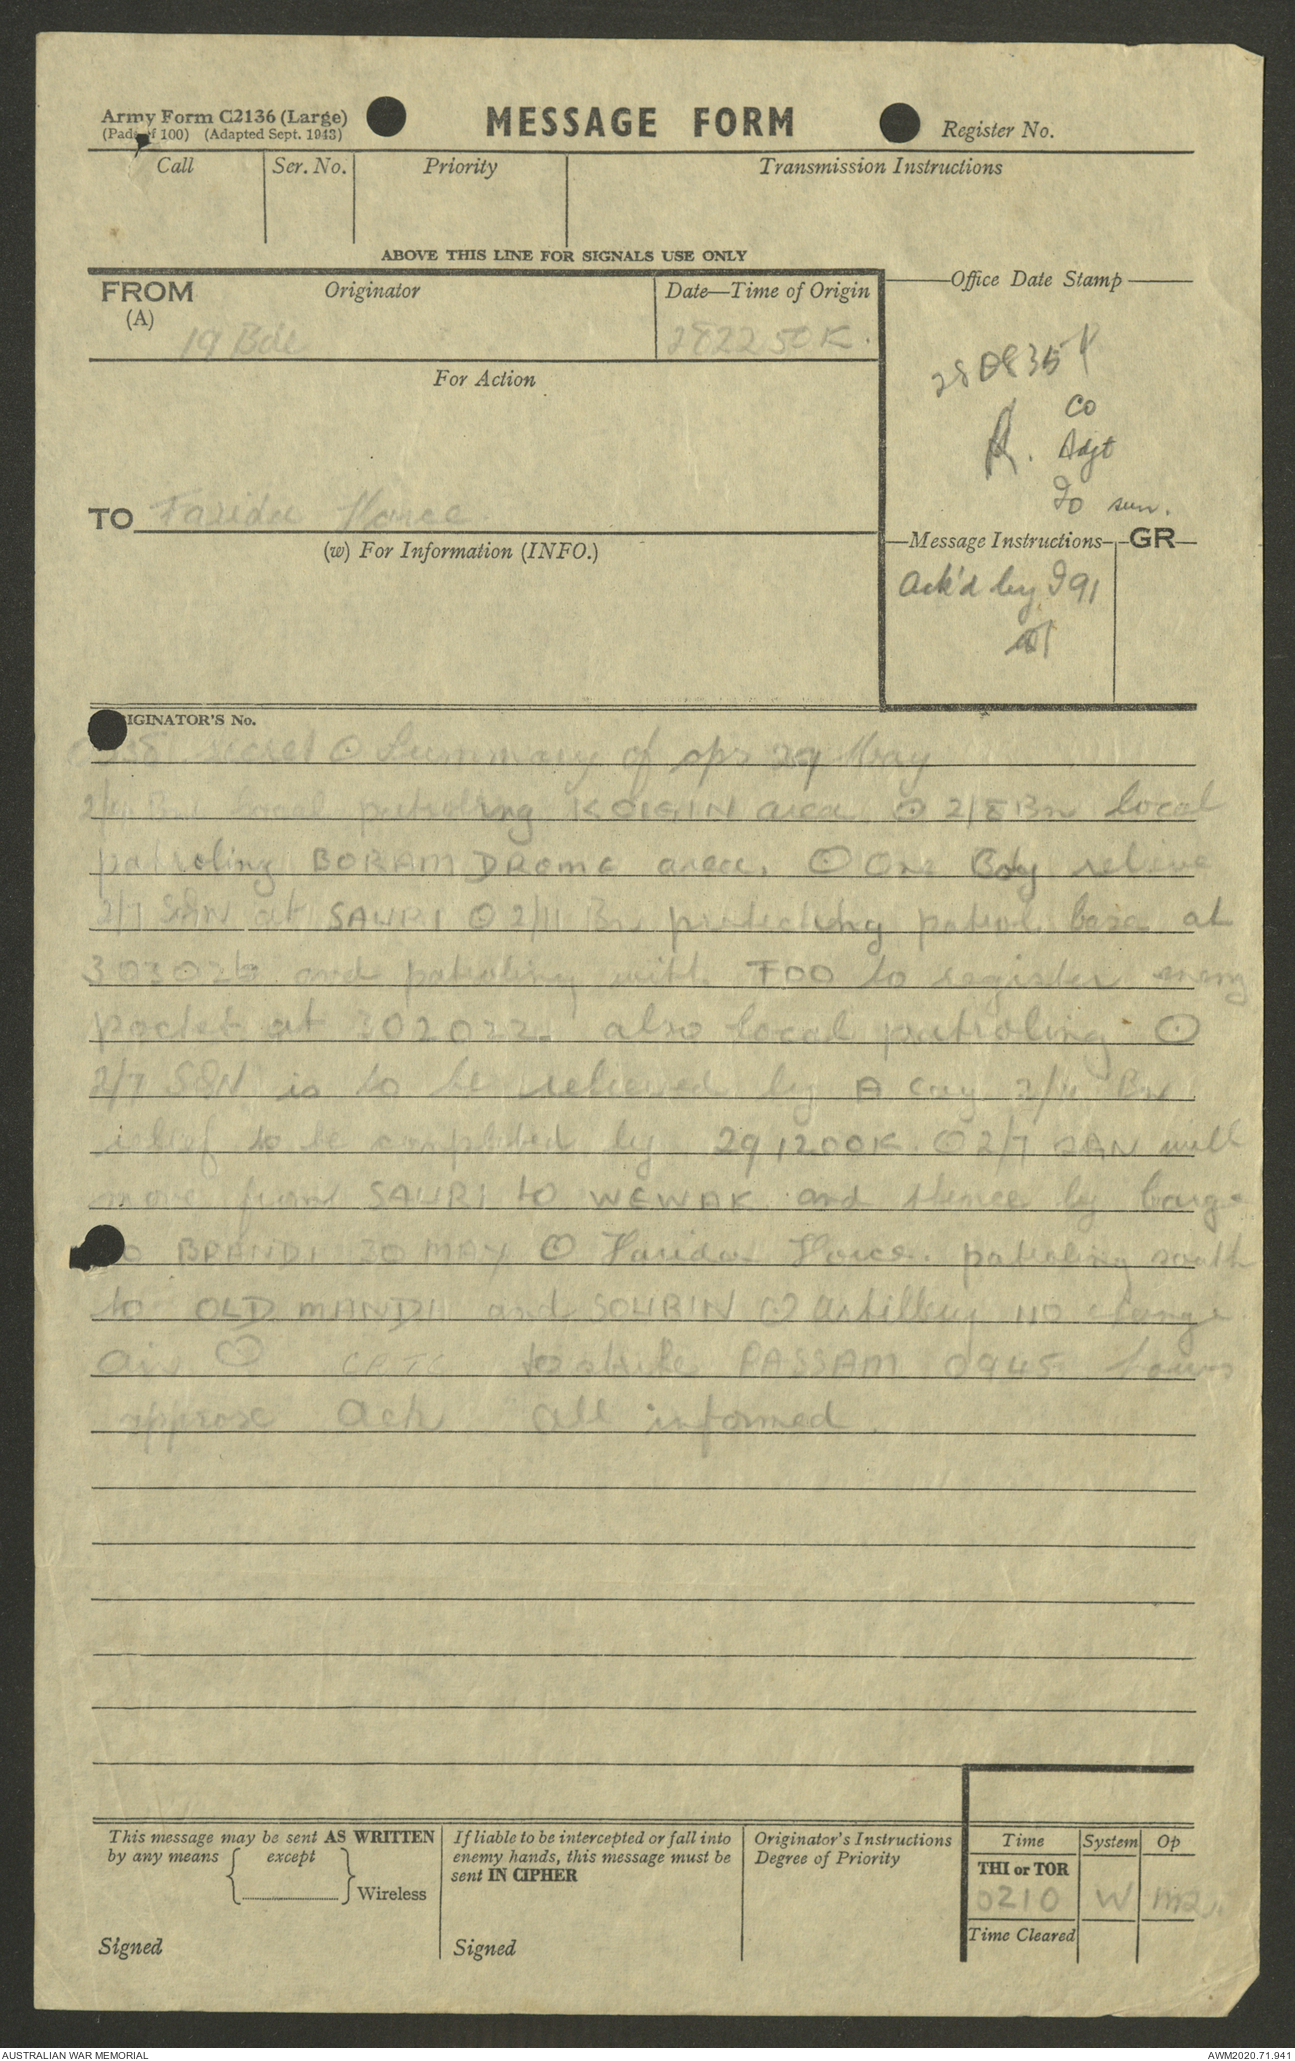 Army Form C2136 (Large)
MESSAGE FORM
Register No.
(Pads of 100) (Adapted Sept. 1943)
Call Ser. No. Priority Transmission Instructions
ABOVE THIS LINE FOR SIGNALS USE ONLY
FROM Originator Date—Time of Origin
(A)
19 Bde 282250K.
Office Date Stamp
For Action
CO
Adjt
IO
TO Farida Force
(w) For Information (INFO.)
Message Instructions GR
Ack'd by I91
ORIGINATOR'S No.
secret ⊙ Summary of ops 29 May
Bn local patroling KOIGIN area ⊙ 2/8 Bn local
patroling BORAM DROME area. ⊙ One Coy relieve
2/7 SQN at SAURI ⊙ 2/11 Bn protecting patrol base at
and patroling with FOO to register enemy
pocket at 302022. also local patroling ⊙
2/7 SQN is to be relieved by A Coy Bn
relief to be completed by 291200K. ⊙ 2/7 SQN will
move from SAURI to WEWAK and thence by barge
to BRANDI 30 MAY ⊙ Farida Force. patroling south
to OLD MANDI and SOURIN ⊙ Artillery no change
Air ⊙ to strike PASSAM 0945 hours
approx Ack all informed.
This message may be sent AS WRITTEN
by any means except
Wireless
Signed
If liable to be intercepted or fall into
enemy hands, this message must be
sent IN CIPHER
Signed
Originator's Instructions
Degree of Priority
Time System Op
THI or TOR
0210 W
Time Cleared
AUSTRALIAN WAR MEMORIAL AWM2020.71.941